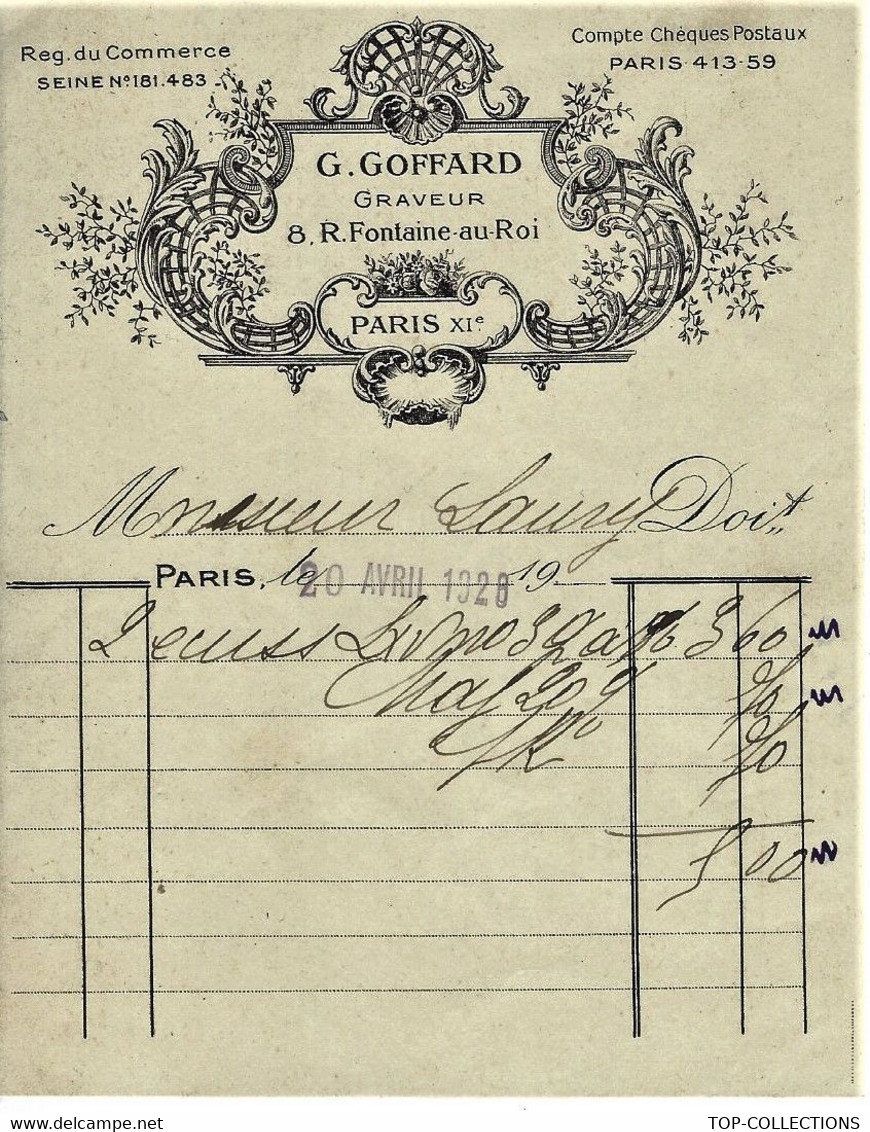 Reg. du Commerce
SEINE Nº 181.483
Compte Chèques Postaux
PARIS 413-59
G. GOFFARD
GRAVEUR
8, R. Fontaine-au-Roi
PARIS XIe
Monsieur Laury Doit
PARIS, le 20 AVRIL 1928 19
2 3 60
70
70
5 00
TOP-COLLECTIONS